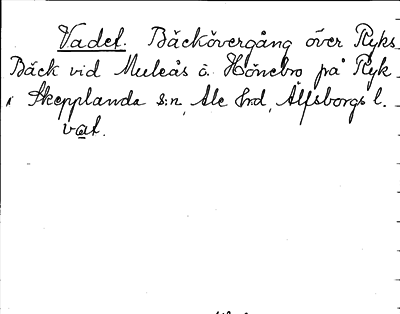 Vadet. Bäckövergång över Ryks
Bäck vid Muleås å. Hönebro på Ryk
i Skepplanda s:n, Ale Hrd, Älfsborgs l.
vat.